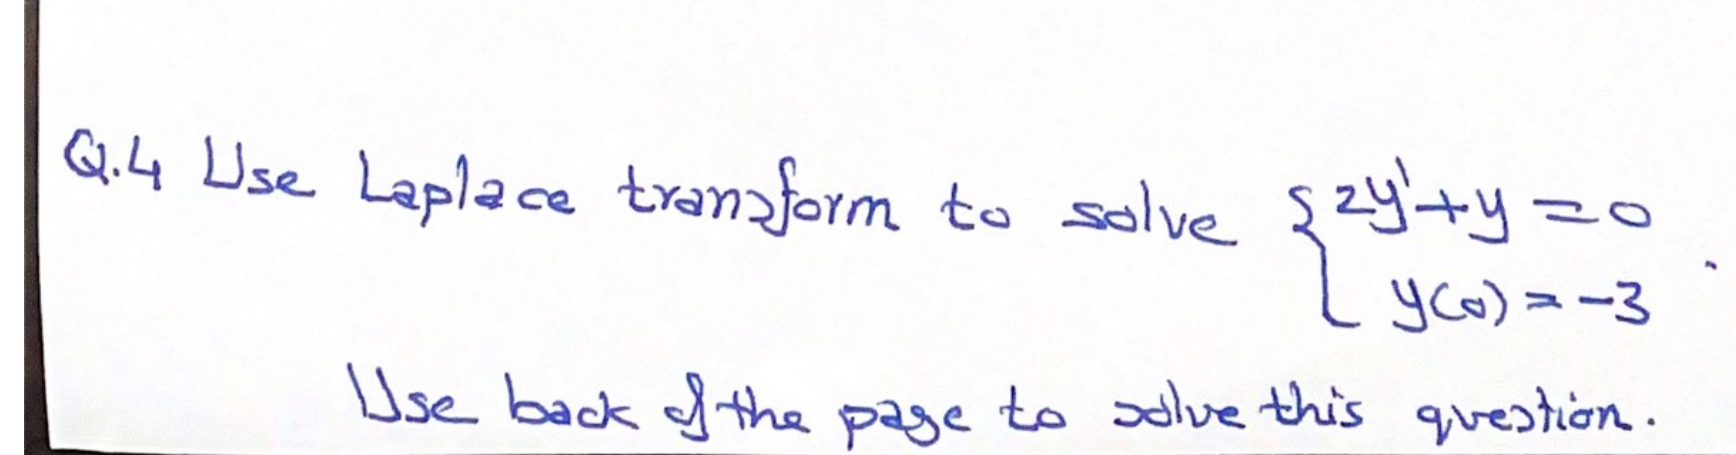 Q.4 Use Laplace transform to solve { 2y'+y=0
y(0)=-3 .
Use back of the page to solve this question.